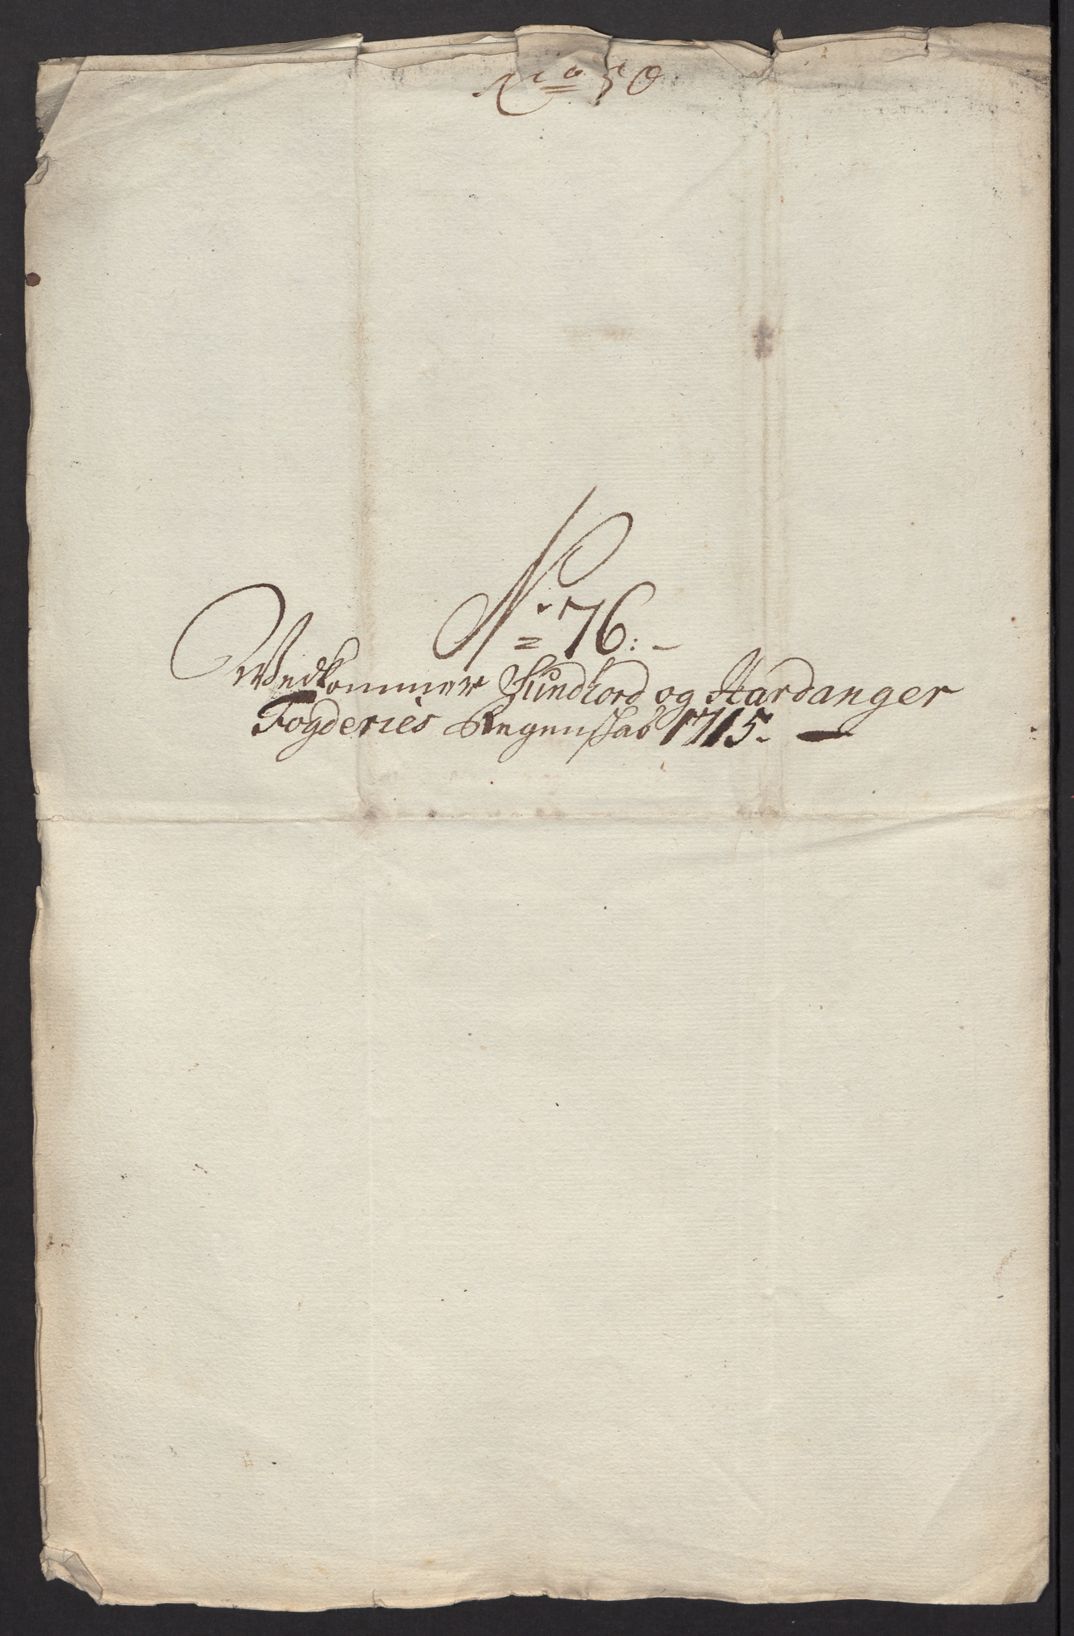 No 76:-
Wedkommer Sundhord og Hardanger
Fogderies Regenskab 1715.